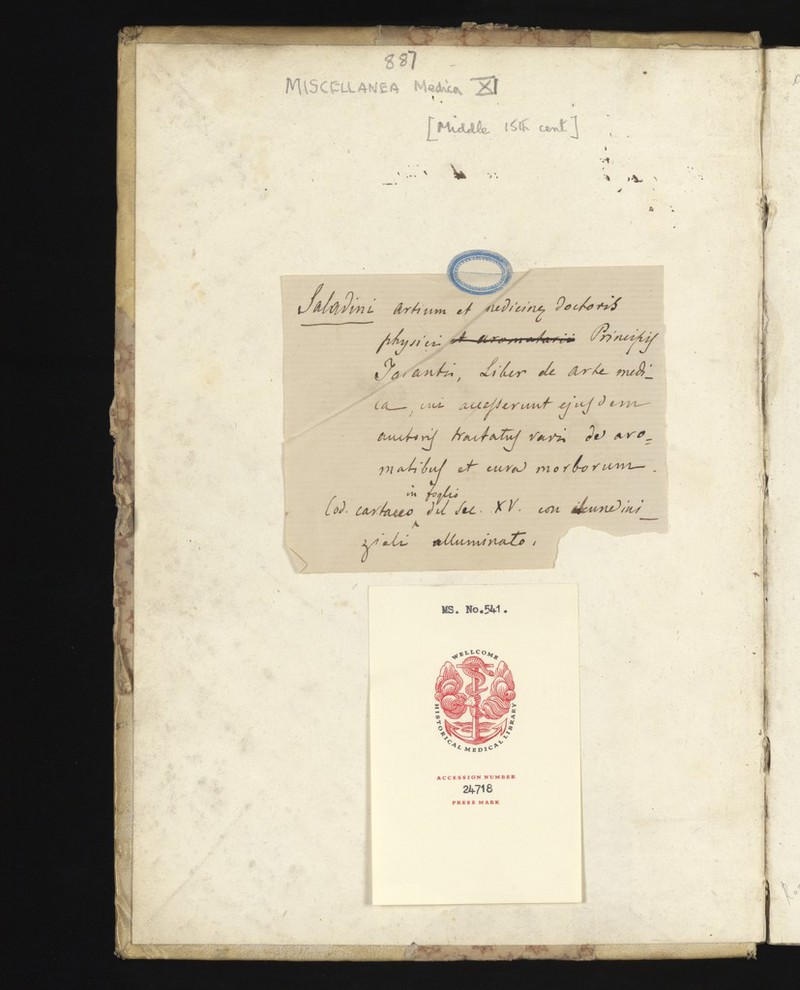 887
MISCELLANEA Medica XI
[Middle 15th cent]
Saladini artium et medicinę doctoris
physici et aromatarii Principis
Tarantis, Liber de arte medi_
ca, cui accesserunt ejusdem
auctoris tractatus varii de aro=
matibus et cura morborum.
in foglio
Cod. cartaceo del Sec. XV. con
ziali alluminato.
MS. No.541.
WELLCOME
HISTORICAL MEDICAL LIBRARY
ACCESSION NUMBER
24718
PRESS MARK